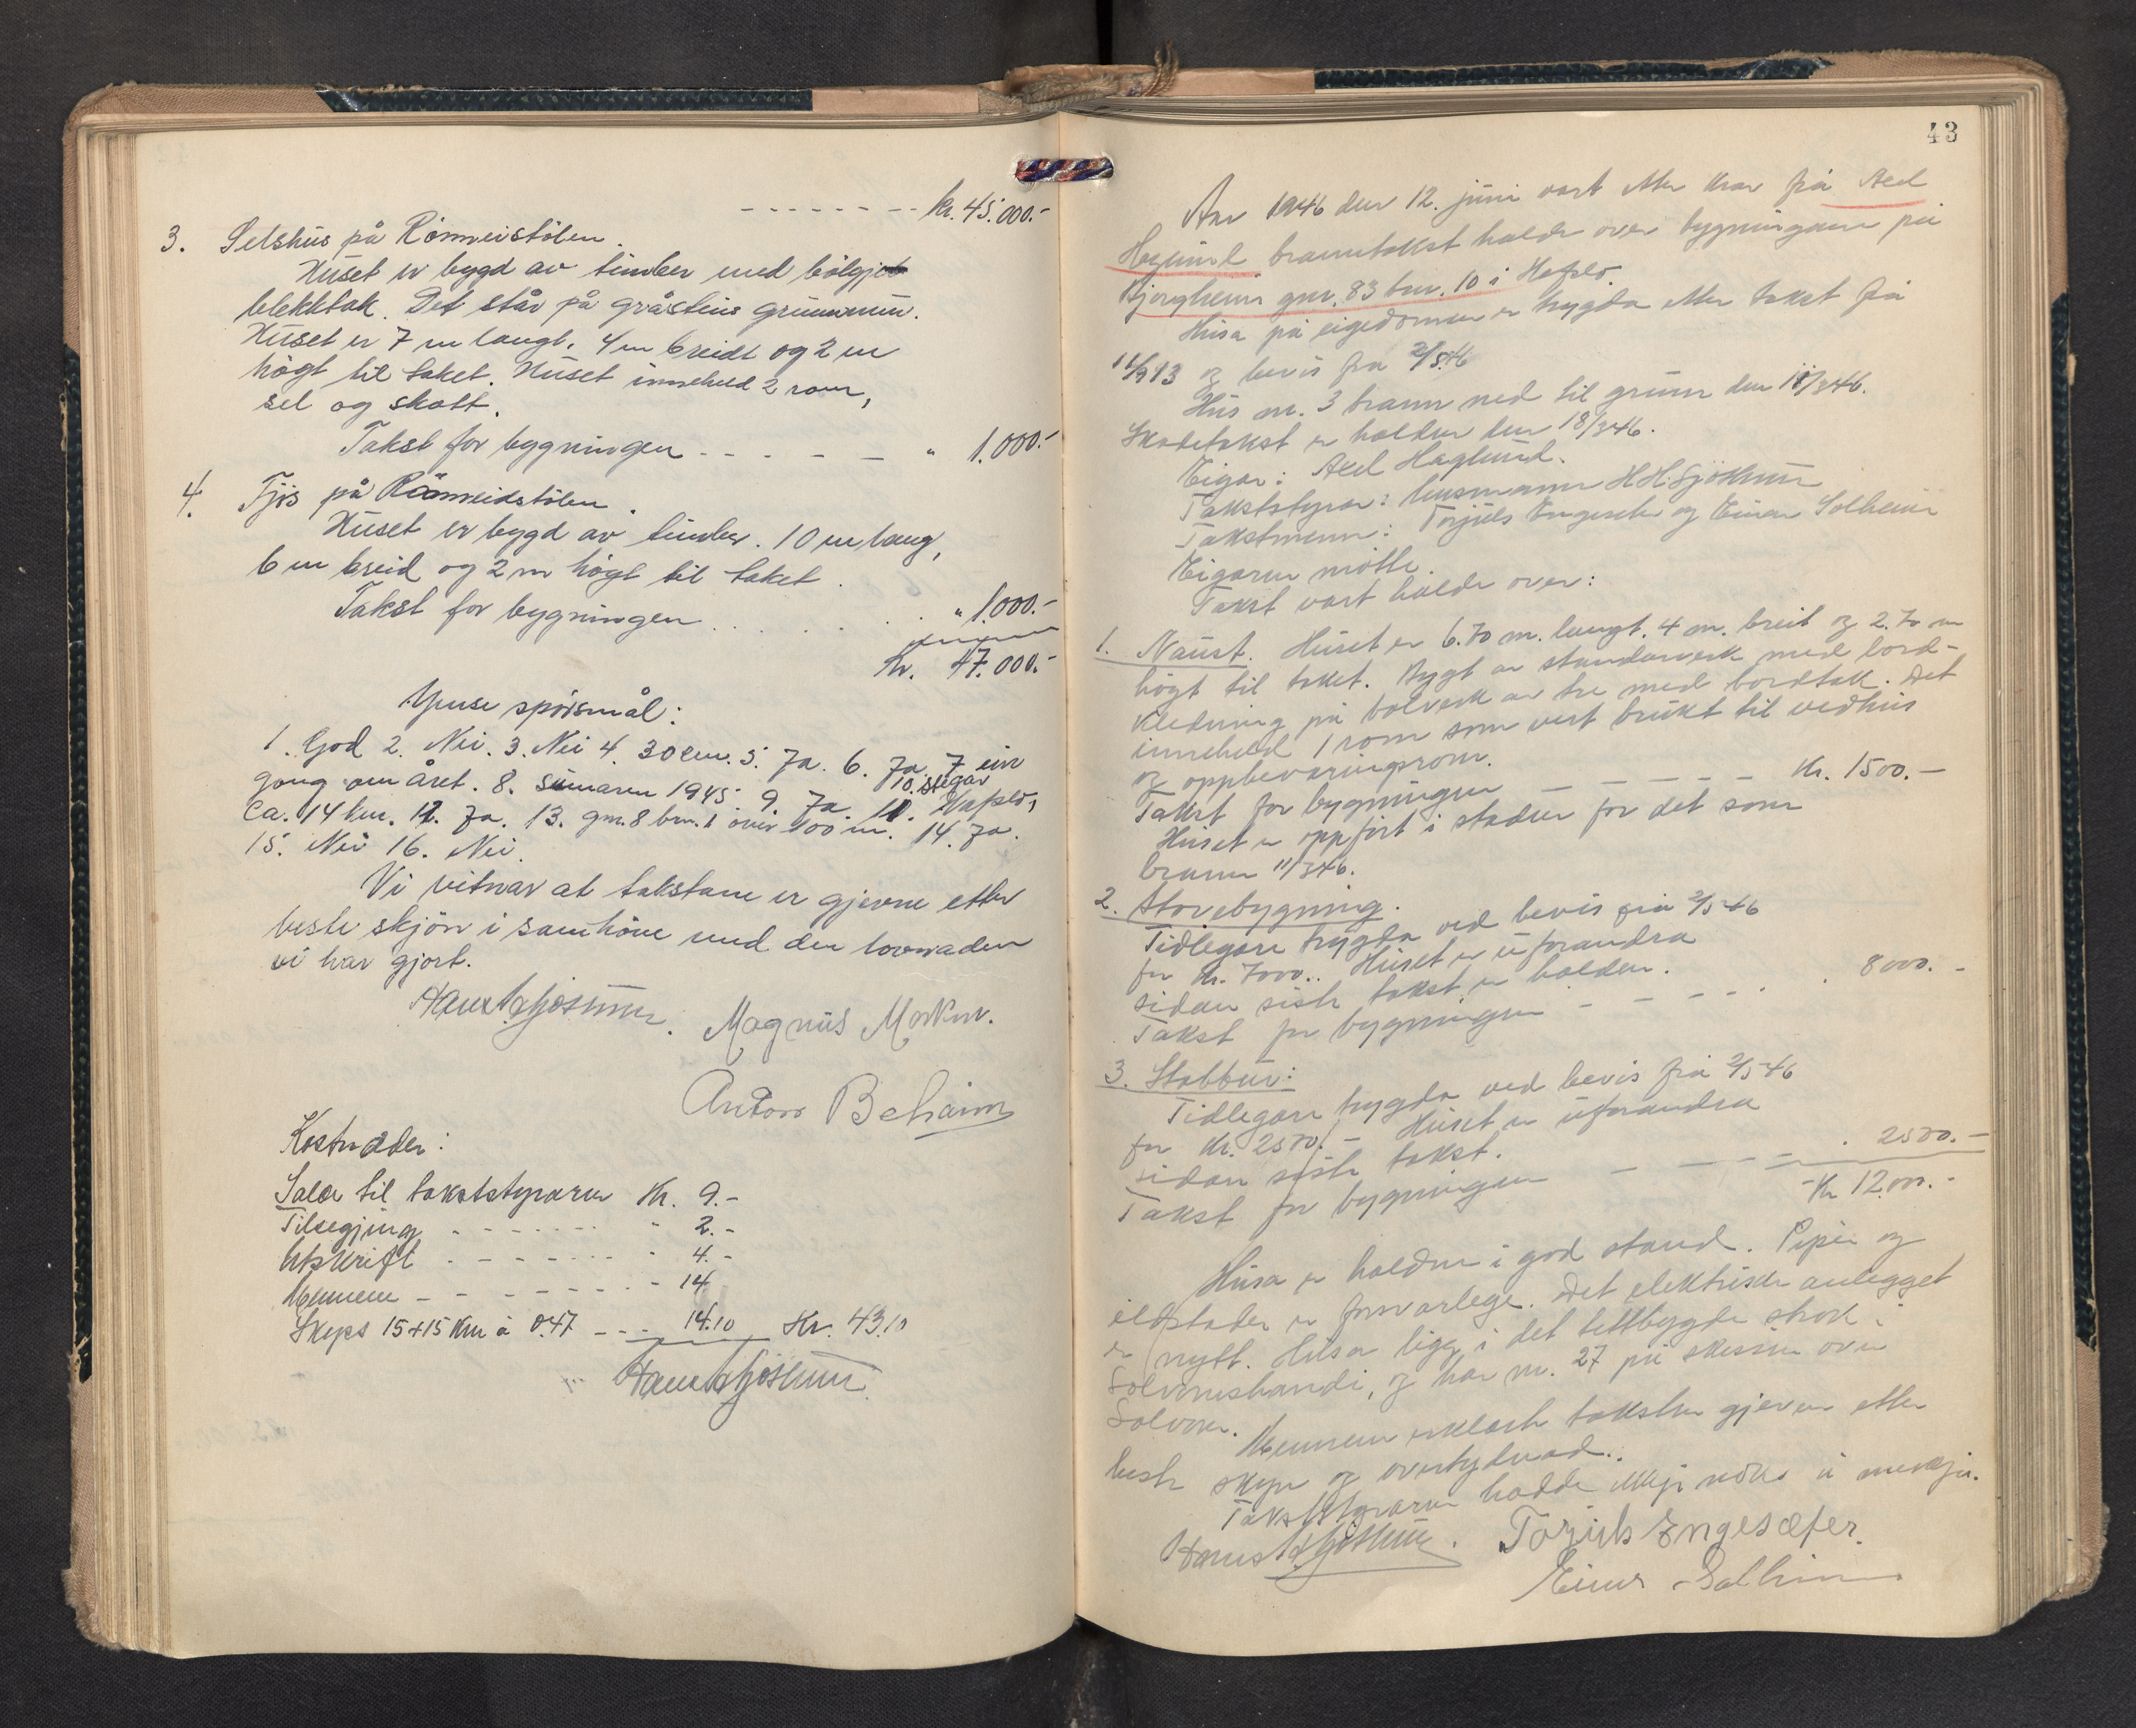 - - - - - - - kr. 45.000.-
3. Selshus på Römeistölen.
Huset er bygd av timber med bölgje
blekktak. Det står på gråsteins grunnmur.
Huset er 7 m langt, 4 m breidt og 2 m
högt til taket. Huset inneheld 2 rom,
sel og skott.
Takst for bygningen - - - - - " 1.000.-
4. Fjös på Römeidstölen.
Huset er bygd av timber. 10 m lang,
6 m breid og 2 m högt til taket.
Takst for bygningen . . . . . " 1.000.-
Kr. 47.000.-
Ymse spörsmål:
1. God 2. Nei. 3. Nei 4. 30 cm. 5. Ja. 6. Ja. 7 ein
gong om året. 8. sumaren 1945. 9. Ja. 10. stegar 11. Hafslo,
Ca. 14 km. 12. Ja. 13. gnr. 8 brn. 1 over 100 m. 14. Ja.
15. Nei 16. Nei.
Vi vitnar at takstane er gjevne etter
beste skjön i samhöve med den lovnaden
vi har gjort.
Hans H Sjöthun. Magnus Morken.
Anton Beheim
Kostnader:
Salær til takststyraren Kr. 9.-
Tilsegjing - - - - - - " 2.-
Utskrift - - - - - - " 4.-
Mennene - - - - - - - 14
Skyss 15+15 km à 0.47 - - - 14.10 Kr. 43.10
Hans H Sjöthun.
43
År 1946 den 12. juni vart etter krav frå Axel
Haglund branntakst halde over bygningane på
Bjørgheim gnr. 83 brn. 10 i Hafslo.
Husa på eigedomen er trygda etter takst frå
11/9 13 og bevis fra 2/5 46
Hus nr. 3 brann ned til grunn den 11/3 46.
Skadetakst er halden den 18/3 46.
Eigar: Axel Haglund.
Takststyrar: lensmann H.H. Sjöthun
Takstmenn: Torjuls Engesæter og Einar Solheim
Eigaren mötte.
Takst vart halde over:
1. Naust. Huset er 6.70 m. langt, 4 m. breit og 2.70 m
högt til taket. Bygt av standarverk med bord-
kledning på bolverk av tre med bordtak. Det
inneheld 1 rom som vert brukt til vedhus
og oppbevaringsrom.
Takst for bygningen - - - - - Kr. 1500.-
Huset er oppfört i staden for det som
brann 11/3 46.
2. Stovebygning.
Tidlegare trygda ved bevis frå 2/5-46
for kr. 7000.. Huset er uforandra
sidan siste takst er halden.
Takst for bygningen - - - - - . 8000.-
3. Stabbur:
Tidlegare trygda ved bevis frå 2/5-46
for Kr. 2500.- Huset er uforandra
sidan siste takst.
Takst for bygningen - - - - - . 2500.-
Kr 12.000.-
Husa er haldne i god stand. Piper og
eldstader er forsvarlege. Det elektriske anlegget
er nytt. Husa ligg i det tettbygde strok i
Solvornshandi, og har nr. 27 på skissen over
Solvorn.
Mennene erklærte taksten gjeven etter
beste skjön og overtydnad.
Takststyraren hadde ikkje noko å merkja.
Hans H Sjöthun. Torjuls Engesæter.
Einar Solheim